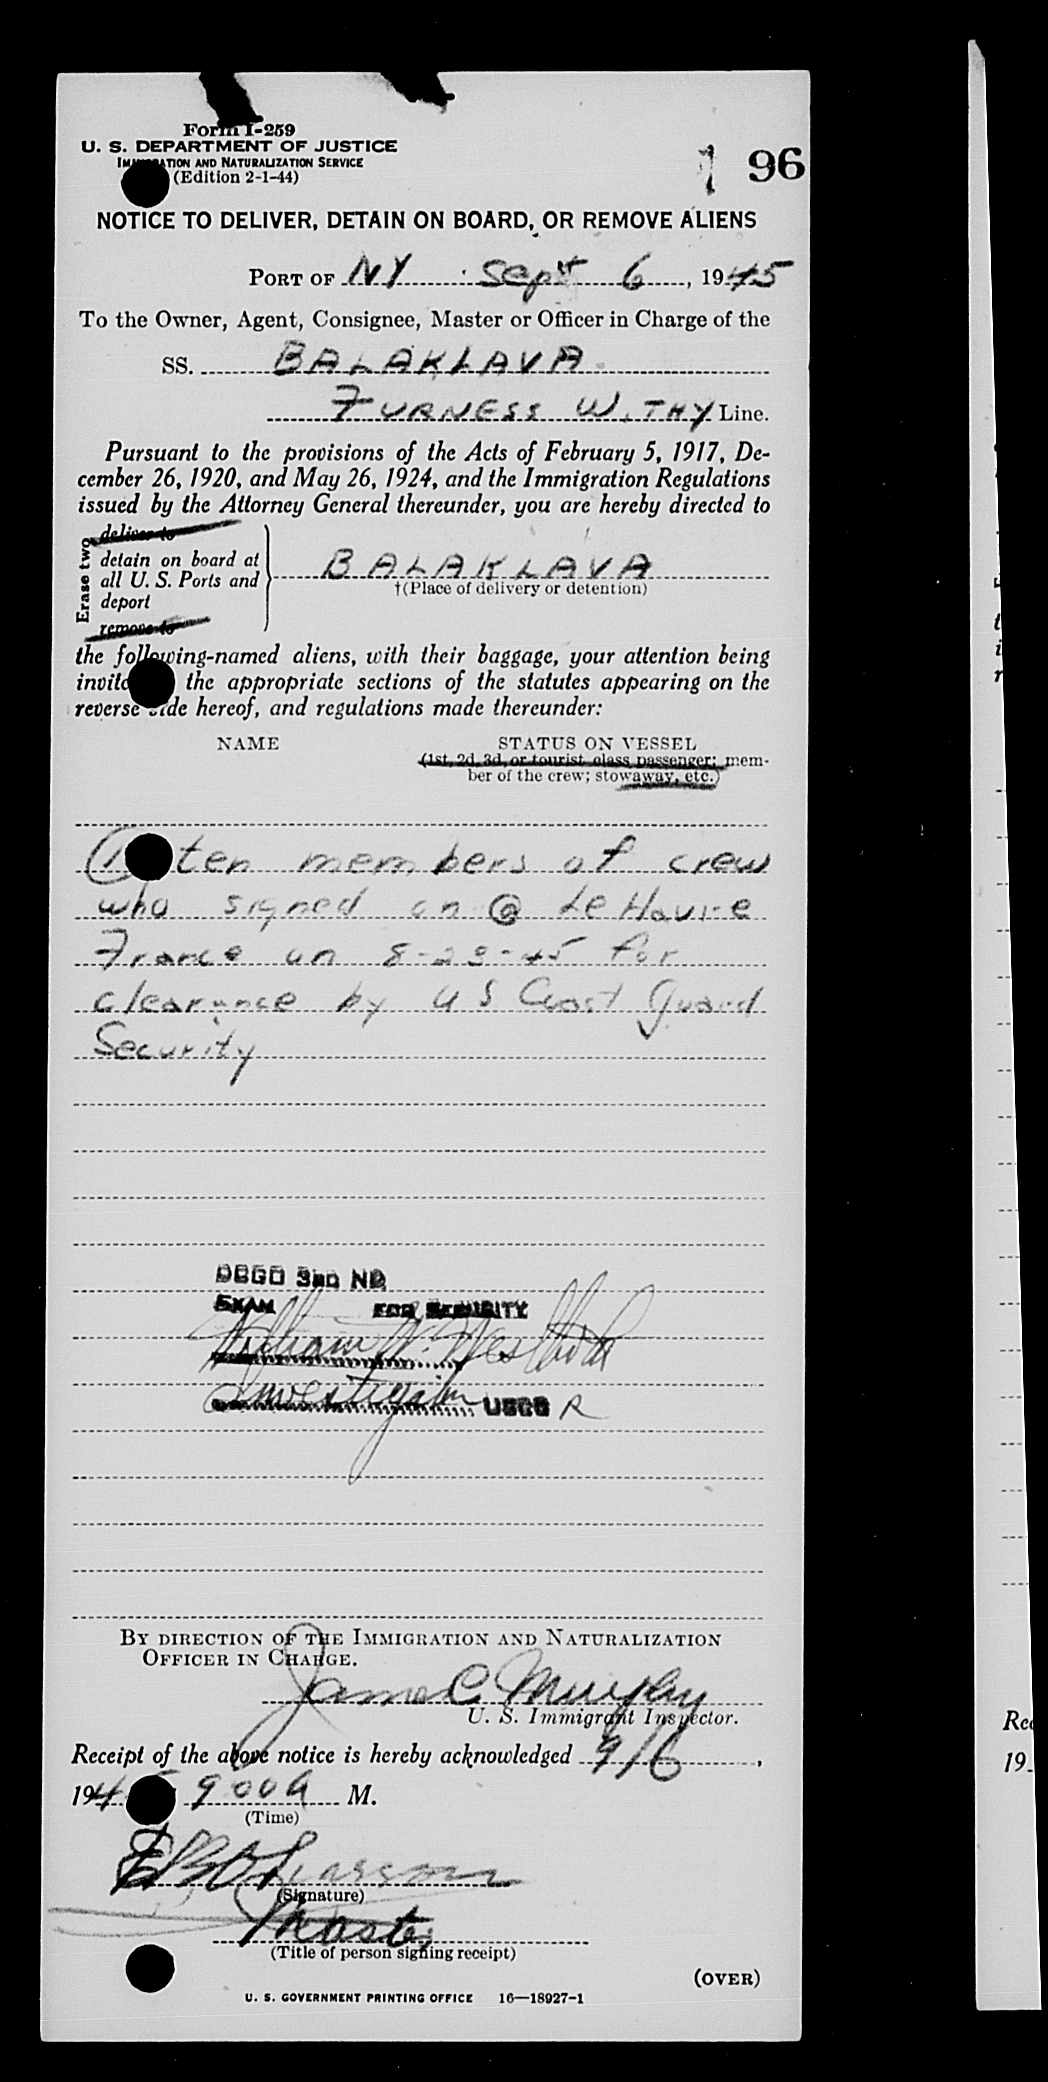 Form I-259
U. S. DEPARTMENT OF JUSTICE
IMMIGRATION AND NATURALIZATION SERVICE
(Edition 2-1-44)
1 96
NOTICE TO DELIVER, DETAIN ON BOARD, OR REMOVE ALIENS
PORT OF NY Sept 6, 1945
To the Owner, Agent, Consignee, Master or Officer in Charge of the
SS. BALAKLAVA
FURNESS W.THY Line.
Pursuant to the provisions of the Acts of February 5, 1917, De-
cember 26, 1920, and May 26, 1924, and the Immigration Regulations
issued by the Attorney General thereunder, you are hereby directed to
Erase two
deliver to
detain on board at
all U. S. Ports and
deport
remove to
BALAKLAVA
†(Place of delivery or detention)
the following-named aliens, with their baggage, your attention being
invited the appropriate sections of the statutes appearing on the
reverse side hereof, and regulations made thereunder:
NAME STATUS ON VESSEL
(1st, 2d, 3d, or tourist class passenger; mem-
ber of the crew; stowaway, etc.)
ten members of crew
who signed on @ Le Havre
France on 8-23-45 for
clearance by US Coast Guard
Security
DCGO 3RD ND
EXAM FOR SECURITY
William W.
Investigator USCG R
BY DIRECTION OF THE IMMIGRATION AND NATURALIZATION
OFFICER IN CHARGE.
James C Murphy
U. S. Immigrant Inspector.
Receipt of the above notice is hereby acknowledged 9/6,
194 900A M.
(Time)
(Signature)
Master
(Title of person signing receipt)
(OVER)
U. S. GOVERNMENT PRINTING OFFICE 16—18927-1
Rec
19